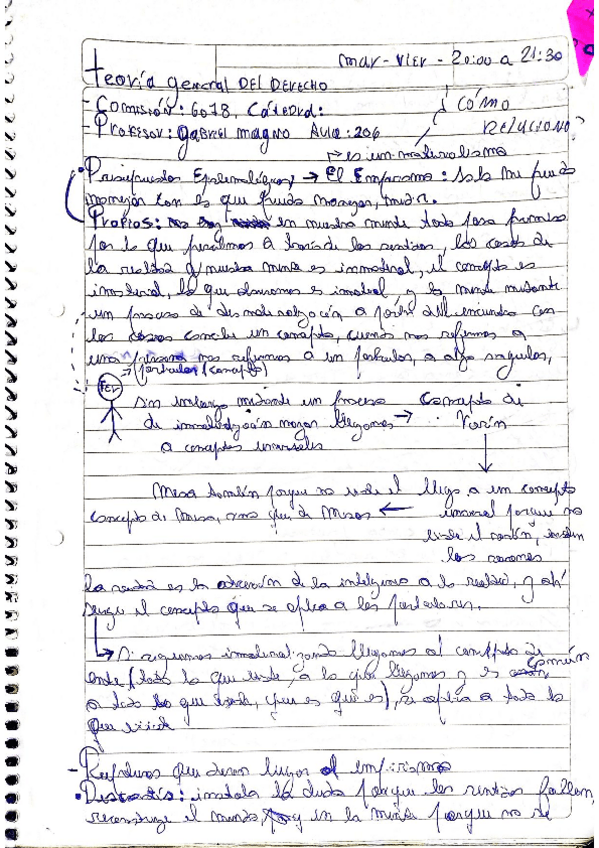 mar - vier - 20:00 a 21:30
teoría general DEL DERECHO
- Comisión: 6078, Cátedra:
CÓMO
- Profesor: gabriel magno Aula: 206
RELACIONO?
→ es un materialismo
• Presupuestos Epistemológicos → El Empirismo: Solo me puedo
manejar con es que puedo manejar, medir.
Propios: en nuestra mente todo pasa primero
por lo que percibimos a través de los sentidos, las cosas de
la realidad y nuestra mente es inmaterial, el concepto es
inmaterial, lo que observamos es material y la mente mediante
un proceso de desmaterialización a partir del encuentro con
las cosas concibe un concepto, cuando nos referimos a
una persona nos referimos a un particular, a algo singular,
→ (particular / concepto)
FER
Sin embargo mediante un proceso Concepto de
de inmaterialización mayor llegamos → Varón
a conceptos universales
Mesa también porque no existe el llego a un concepto
concepto de Mesa, sino que de Mesas ← universal porque no
existe el varón, existen
los varones
La verdad es la adecuación de la inteligencia a la realidad, y ahí
surge el concepto que se aplica a los particulares.
→ Si seguimos inmaterializando llegamos al concepto de
ente (todo lo que existe, a lo que llegamos y es común
a todo lo que existe, que es que es), se aplica a todo lo
que existe
- Posturas que dieron lugar al empirismo
• Descartes: instala la duda porque los sentidos fallan,
reconstruye el mundo, y en la mente porque no se